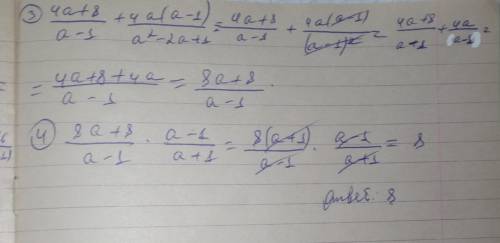 ③ (4a+8)/(a-1) + (4a(a-1))/(a²-2a+1) = (4a+8)/(a-1) + (4a(a-1))/((a-1)²) = (4a+8)/(a-1) + 4a/(a-1) =
= (4a+8+4a)/(a-1) = (8a+8)/(a-1).
④ (8a+8)/(a-1) · (a-1)/(a+1) = (8(a+1))/(a-1) · (a-1)/(a+1) = 8
ответ: 8